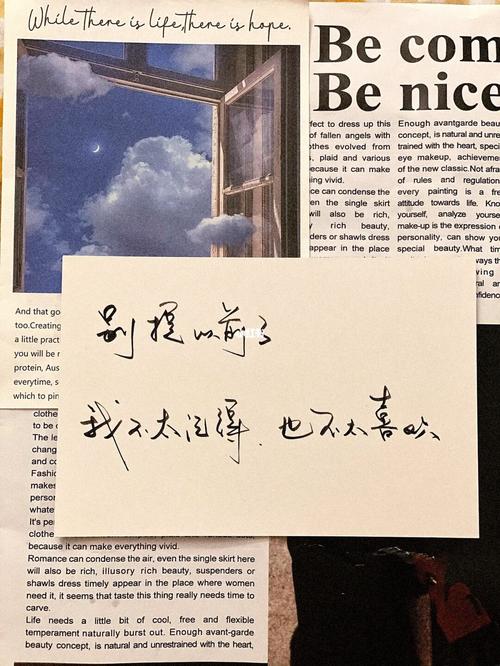 While there is life, there is hope.
Be com
Be nice
fect to dress up this
of fallen angels with
othes evolved from
s, plaid and various
ecause it can make
ing vivid.
ce can condense the
en the single skirt
will also be rich,
y rich beauty,
ders or shawls dress
appear in the place
Enough avantgarde beau
concept, is natural and unre
trained with the heart, speci
eye makeup, achieveme
of the new classic.Not afra
of rules and regulation
every painting is a fre
attitude towards life. Kno
yourself, analyze yourse
make-up is the expression o
personality, can show you
special beauty.What tim
ways th
wing
ral an
nfidenc
And that go
too.Creating
a little pract
you will be r
protein, Aus
everytime, s
which to pin
别提以前了
我不太记得.也不太喜欢、
clothe
to be c
The le
chang
and co
Fashic
makes
person
whate
It's pe
clothe
because it can make everything vivid.
Romance can condense the air, even the single skirt here
will also be rich, illusory rich beauty, suspenders or
shawls dress timely appear in the place where women
need it, it seems that taste this thing really needs time to
carve.
Life needs a little bit of cool, free and flexible
temperament naturally burst out. Enough avant-garde
beauty concept, is natural and unrestrained with the heart,